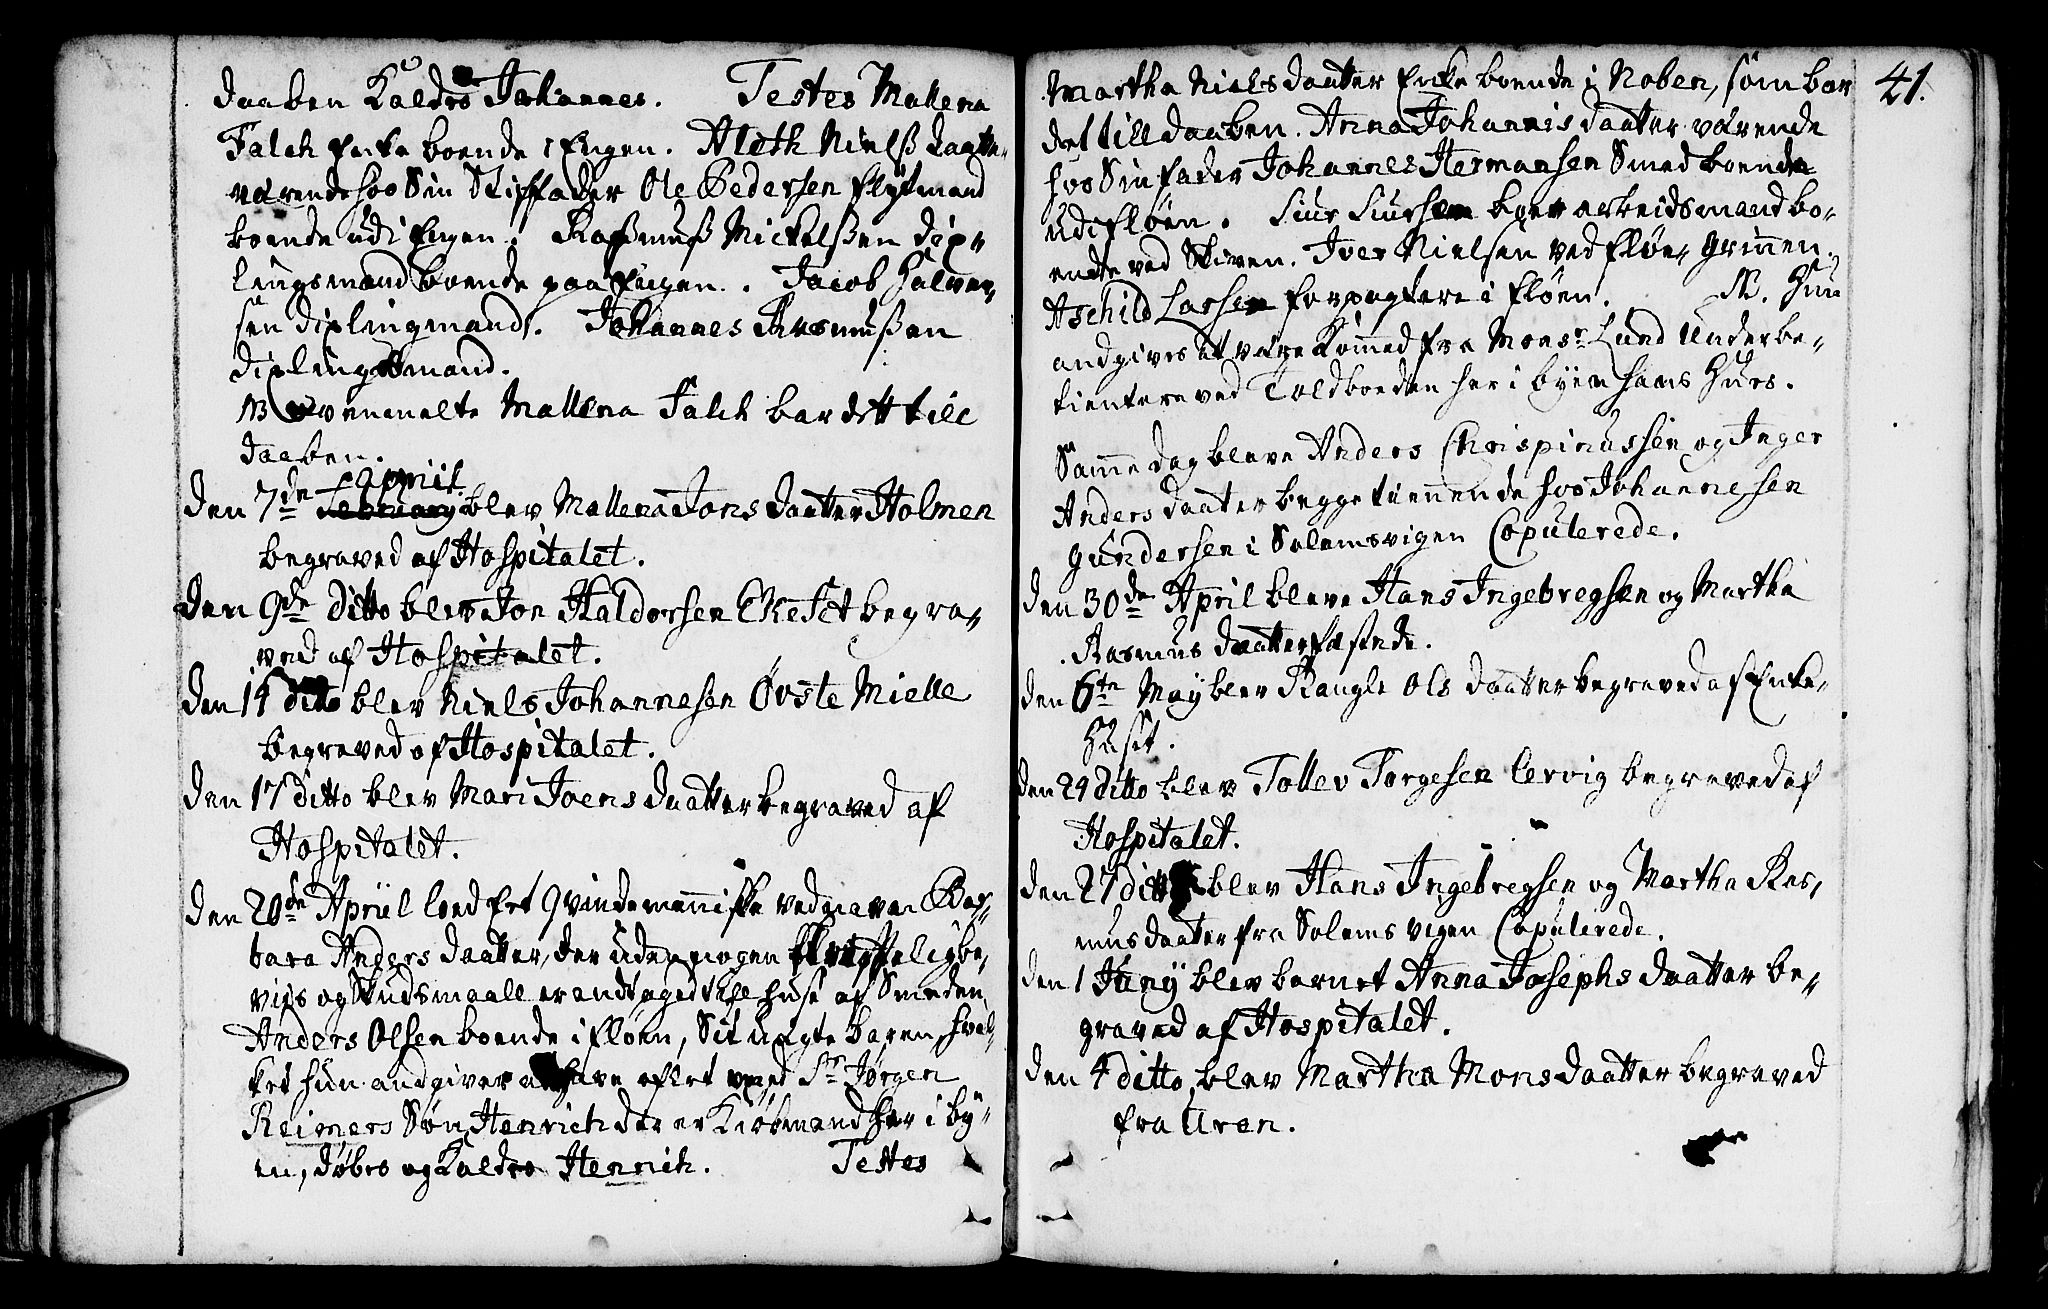 daaben Kaldes Johannes. Testes Mallena
Falch Enke boende i Engen. Aleth Nielß daatter
værende hos Sin Stiffader Ole Pedersen flytmand
boende udi Engen. Raßmuß Mickelßen dep-
lingsmand boende paa Engen. Jacob Halvor-
sen diplingmand. Johannes Rasmußen
diplingsmand.
NB ovenmelte Mallena Falch bar dett till
daaben.
April
Den 7de February blev Mallena Jons daatter Holmen
begraved af Hospitalet.
Den 9de ditto blev Jon Haldorsen Ekeset begra-
ved af Hospitalet.
Den 14 ditto blev Niels Johannesen Øvste Mielle
begraved af Hospitalet.
Den 17 ditto blev Mari Joens daatter begraved af
Hospitalet.
Den 20de Apriil loed Eet Qvindemenniske ved navn Bar-
bara Anders daatter, der uden nogen be-
viis og Skudsmaall er andtaged til huse af Smeden
Anders Olsen boende i fløen, Sit uægte baren, hvil-
ket hun andgiver at have aflet med Sr Jørgen
Reimers Søn Henrich der er Kiøbmand her i by-
en, døbes og Kaldes Henrich. Testes
41.
Martha Niels daatter Enke boende i Noben, som bar
det till daaben. Anna Johannis daatter værende
hos Sin fader Johannes Hermansen Smed boende
udi fløen. Siur Siursen byes arbeidsmand bo-
ende ved Skiven. Iver Nielsen ved fløe-Grinnen.
Aschild Larsen forpagtere i fløen. NB. Hun
andgives at være Kommed fra Monsr Lund Underbe-
tientere ved Toldboeden her i byen hans Huus.
Samme dag bleve Anders Chrispinussen og Inger
Anders daatter begge tienende hos Johannesen
Gundersen i Solemsvigen Copulerede.
Den 30de April bleve Hans Ingebregsen og Martha
Rasmus daatter fæstede.
Den 6te May blev Raugle Ols daatter begraved af Enke-
Huset.
Den 24 ditto blev Tollev Torgesen Lervig begraved af
Hospitalet.
Den 27 ditto blev Hans Ingebregsen og Martha Ras-
mus daatter fra Solems vigen Copulerede.
Den 1 Juny blev barnet Anna Josephs daatter be-
graved af Hospitalet.
Den 4 ditto blev Martha Mons daatter begraved
fra Uren.